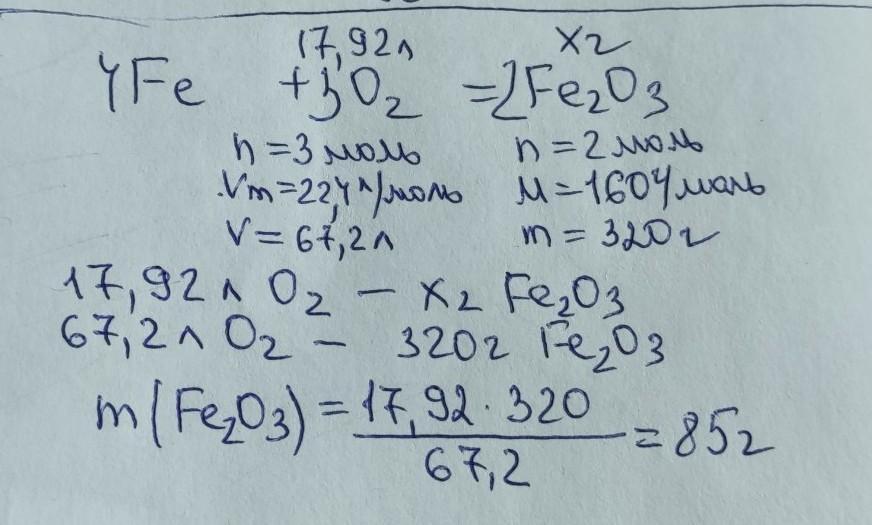 17,92л x г
4Fe + 3O₂ = 2Fe₂O₃
n = 3 моль n = 2 моль
Vm = 22,4 л/моль M = 160 г/моль
V = 67,2 л m = 320 г
17,92 л O₂ – x г Fe₂O₃
67,2 л O₂ – 320 г Fe₂O₃
m(Fe₂O₃) = 17,92 · 320 / 67,2 = 85 г